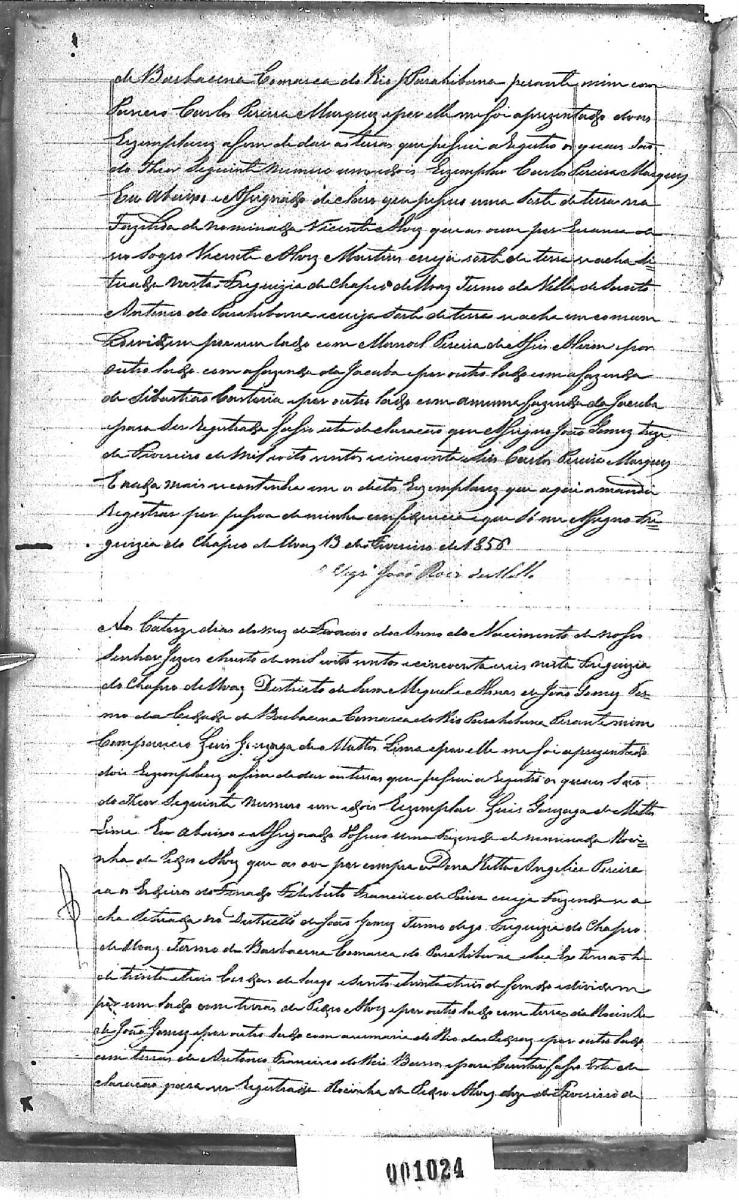 de Barbacena Comarca do Rio Parahibuna perante mim com
Pareceo Carlos Pereira Marques e por elle me foi aprezentado dous
Exzemplares afim de dar as terras que pessuie a Registro os quaes são
do Theor Seguinte Numero um e dois Exzemplar Carlos Pereira Marques
Eu Abaixo e Assignado declaro que pessuo uma Sorte de terras na
Fazenda de nominada Vicente Alvz que as ouve por Erança de
no Sogro Vicente Alvz Martins cuja sorte de terra se acha Si=
tuada nesta Freguizia de Chapeo de Uvaz Termo da Villa de Santo
Antonio do Parahibuna e cuja Sorte de terras se acha em comum
e devidem por um lado com Manoel Pereira e por
outro lado com a fazenda da Jacuba e por outro lado com a fazenda
de Sibastião e por outro lado com a mesma fazenda da Jacuba
e para Ser Registrado fasso esta declaração que Assigno João Gomes treze
de Fevereiro de mil oito centos e cincoenta e seis Carlos Pereira Marques
E nada mais se continha em os ditos Exzemplares que aqui a mandei
Registrar por pessoa de minha confiencia e que Só me Assigno Fre=
guizia do Chapeo de Uvaz 13 de Fevereiro de 1856
João Roiz de Mello
Aos Catorze dias do mez de Fevereiro do Anno do Nacimento de nosso
Senhor Jezus Christo de mil oito centos e cincoenta e seis nesta Freguizia
do Chapeo de Uvaz Districto de Sam Miguel e Almas de João Gomes Ter=
mo da Cidade de Barbacena Comarca do Rio Parahibuna Perante mim
Compareceo Luis Gonzaga de Mattos Lima e por elle me foi aprezentado
dois Exzemplares afim de dar as terras que pessuie a Registro os quaes são
do Theor Seguinte Numero um e dois Exzemplar Luis Gonzaga de Mattos
Lima Eu Abaixo e Assignado Possuo uma Fazenda de nominada Roci=
nha de Pedro Alvz que as ove por compra a Dona Angelica Pereira
e a os Erdeiros do Finado Felisberto Francisco de cuja Fazenda se a
cha Setuada no Districto de João Gomes Termo digo Freguizia do Chapeo
de Uvaz Termo de Barbacena Comarca do Parahibuna
de trinta e trais Cordas de largo e sento e trinta e trais de fundo e devidem
por um lado com terras de Pedro Alvz e por outro lado com terras da Rocinha
de João Gomes e por outro lado com a do Rio das Pedras e por outro lado
com terras de Antonio Francisco de Reis Barros e para Constar fasso Esta de
claração para ser Registrada Rocinha de Pedro Alvz doze de Fevereiro de
001024